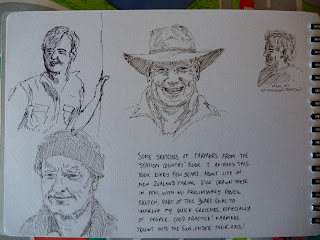 SOME SKETCHES OF FARMERS FROM THE
'STATION COUNTRY' BOOK. I RE-READ THIS
BOOK EVERY FEW YEARS ABOUT LIFE ON
NEW ZEALAND FARMS. I'VE DRAWN THESE
IN PEN, WITH NO PRELIMINARY PENCIL
SKETCH. PART OF THIS YEARS GOAL TO
IMPROVE MY QUICK SKETCHES, ESPECIALLY
OF PEOPLE. GOOD PRACTICE! FARMERS
SQUINT INTO THE SUN, UNDER THEIR HATS!